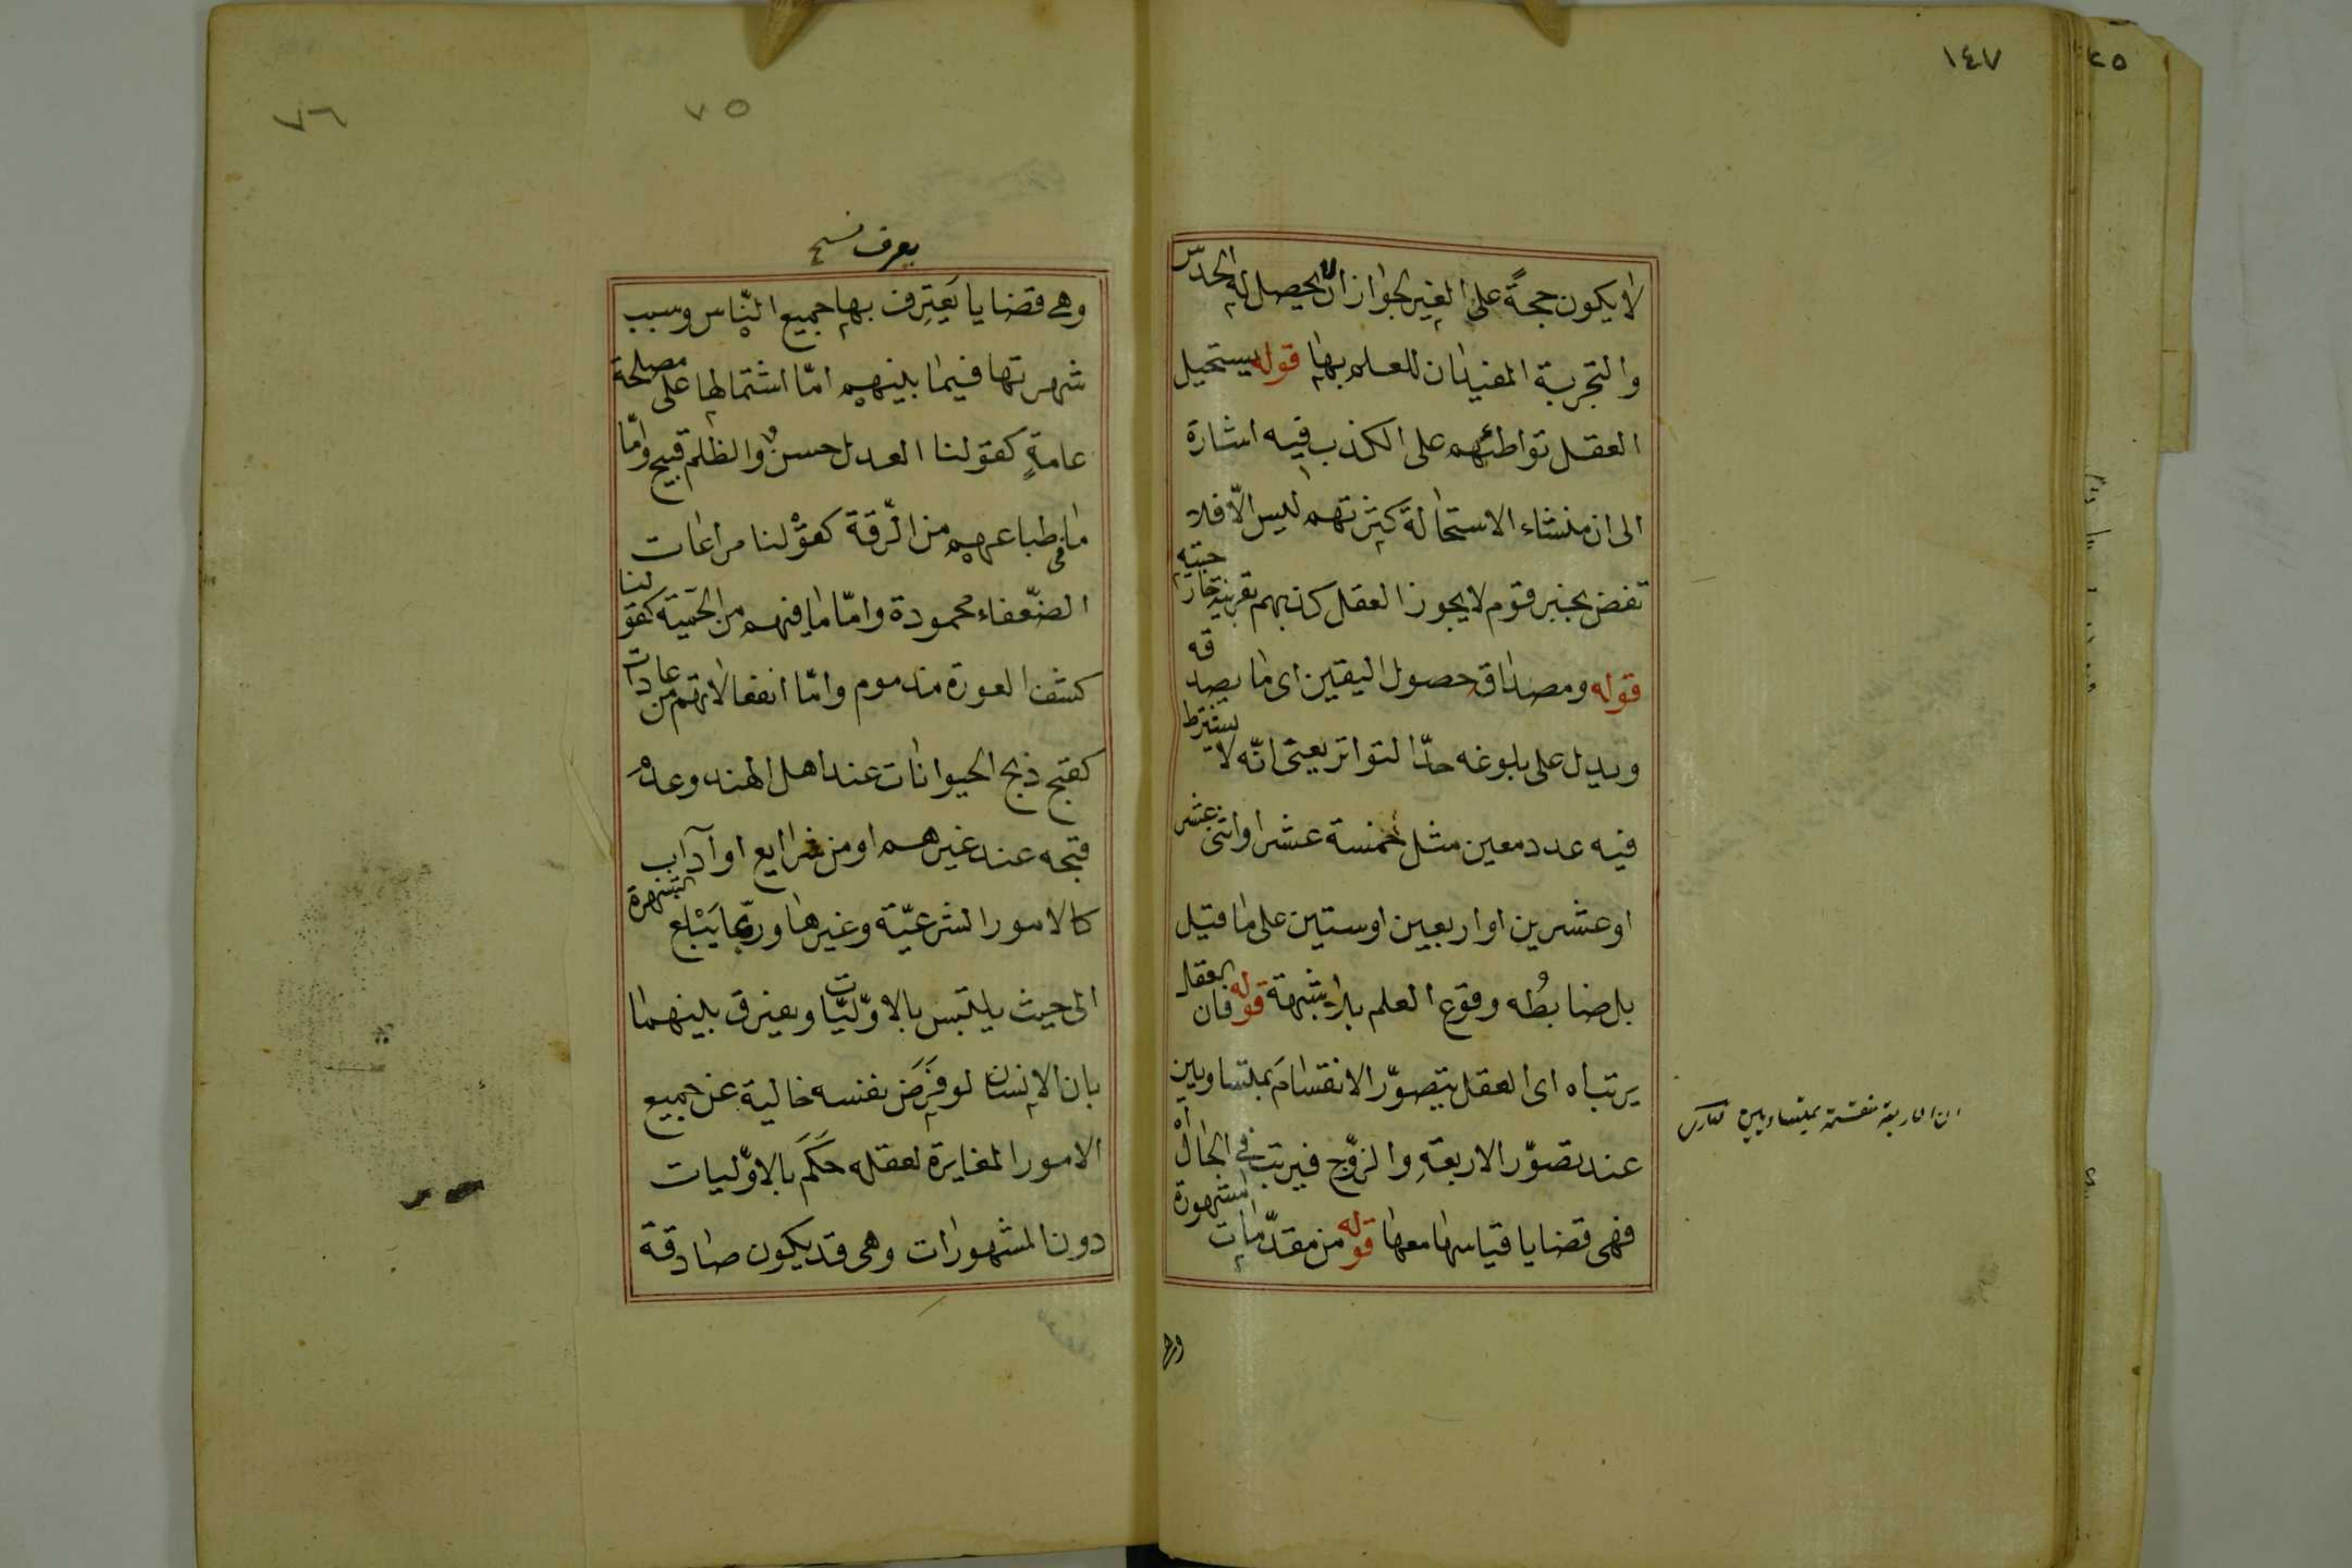 ١٤٧
٢٥
لا يكون حجةً على الغير لجواز ان لا يحصل له الحدس
والتجربة المفيدان للعلم بها قوله يستحيل
العقل تواطئهم على الكذب فيه اشارة
الى ان منشاء الاستحالة كثرتهم ليس الّا فلا
نقض بخبر قوم لا يجوز العقل كذبهم بقرينة خارجتيه
قوله ومصداق حصول اليقين اى ما يصدقه
ويدل على بلوغه حدّ التواتر يعنى انّه لا يشترط
فيه عدد معين مثل خمسة عشر او اثنى عشر
او عشرين او اربعين او ستين على ما قيل
بل ضابطُه وقوع العلم بلا شبهة قوله فان العقل
يرتباه اى العقل يتصوّر الانقسامَ بمتساويين
عند تصوّر الاربعةِ والزوّج فيرتباه فى الحال
فهى قضايا قياسها معها قوله من مقدّمات مشهورة
ان الاربعة منقسمة بمتساويين
وهى
٧٥
٧٦
يعرف نسخ
وهى قضايا يَعترِف بها جميع النّاس وسبب
شهرتها فيما بينهم امّا اشتمالها على مصلحة
عامةٍ كقولنا العدل حسنٌ والظلم قبيح وامّا
ما فى طباعهم من الرّقة كقوْلنا مراعات
الضّعفاء محمودة وامّا ما فيهم من الحَميّة كقولنا
كشف العورة مذموم وامّا انفعالاتهم من عادات
كقبح ذبح الحيوانات عند اهل الهند وعدْمَ
قبحه عند غيرهم او من شرايع او آداب
كالامور الشرعيّة وغيرها وربّما يَبْلغ الشهرة
الى حيث يلتبس بالاوّليّات ويفرق بينهما
بان الانسان لو فرَضَ نفسه خالية عن جميع
الامور المغايرة لعقله حَكَمَ بالاوّليات
دون المشهورات وهى قد يكون صادقة